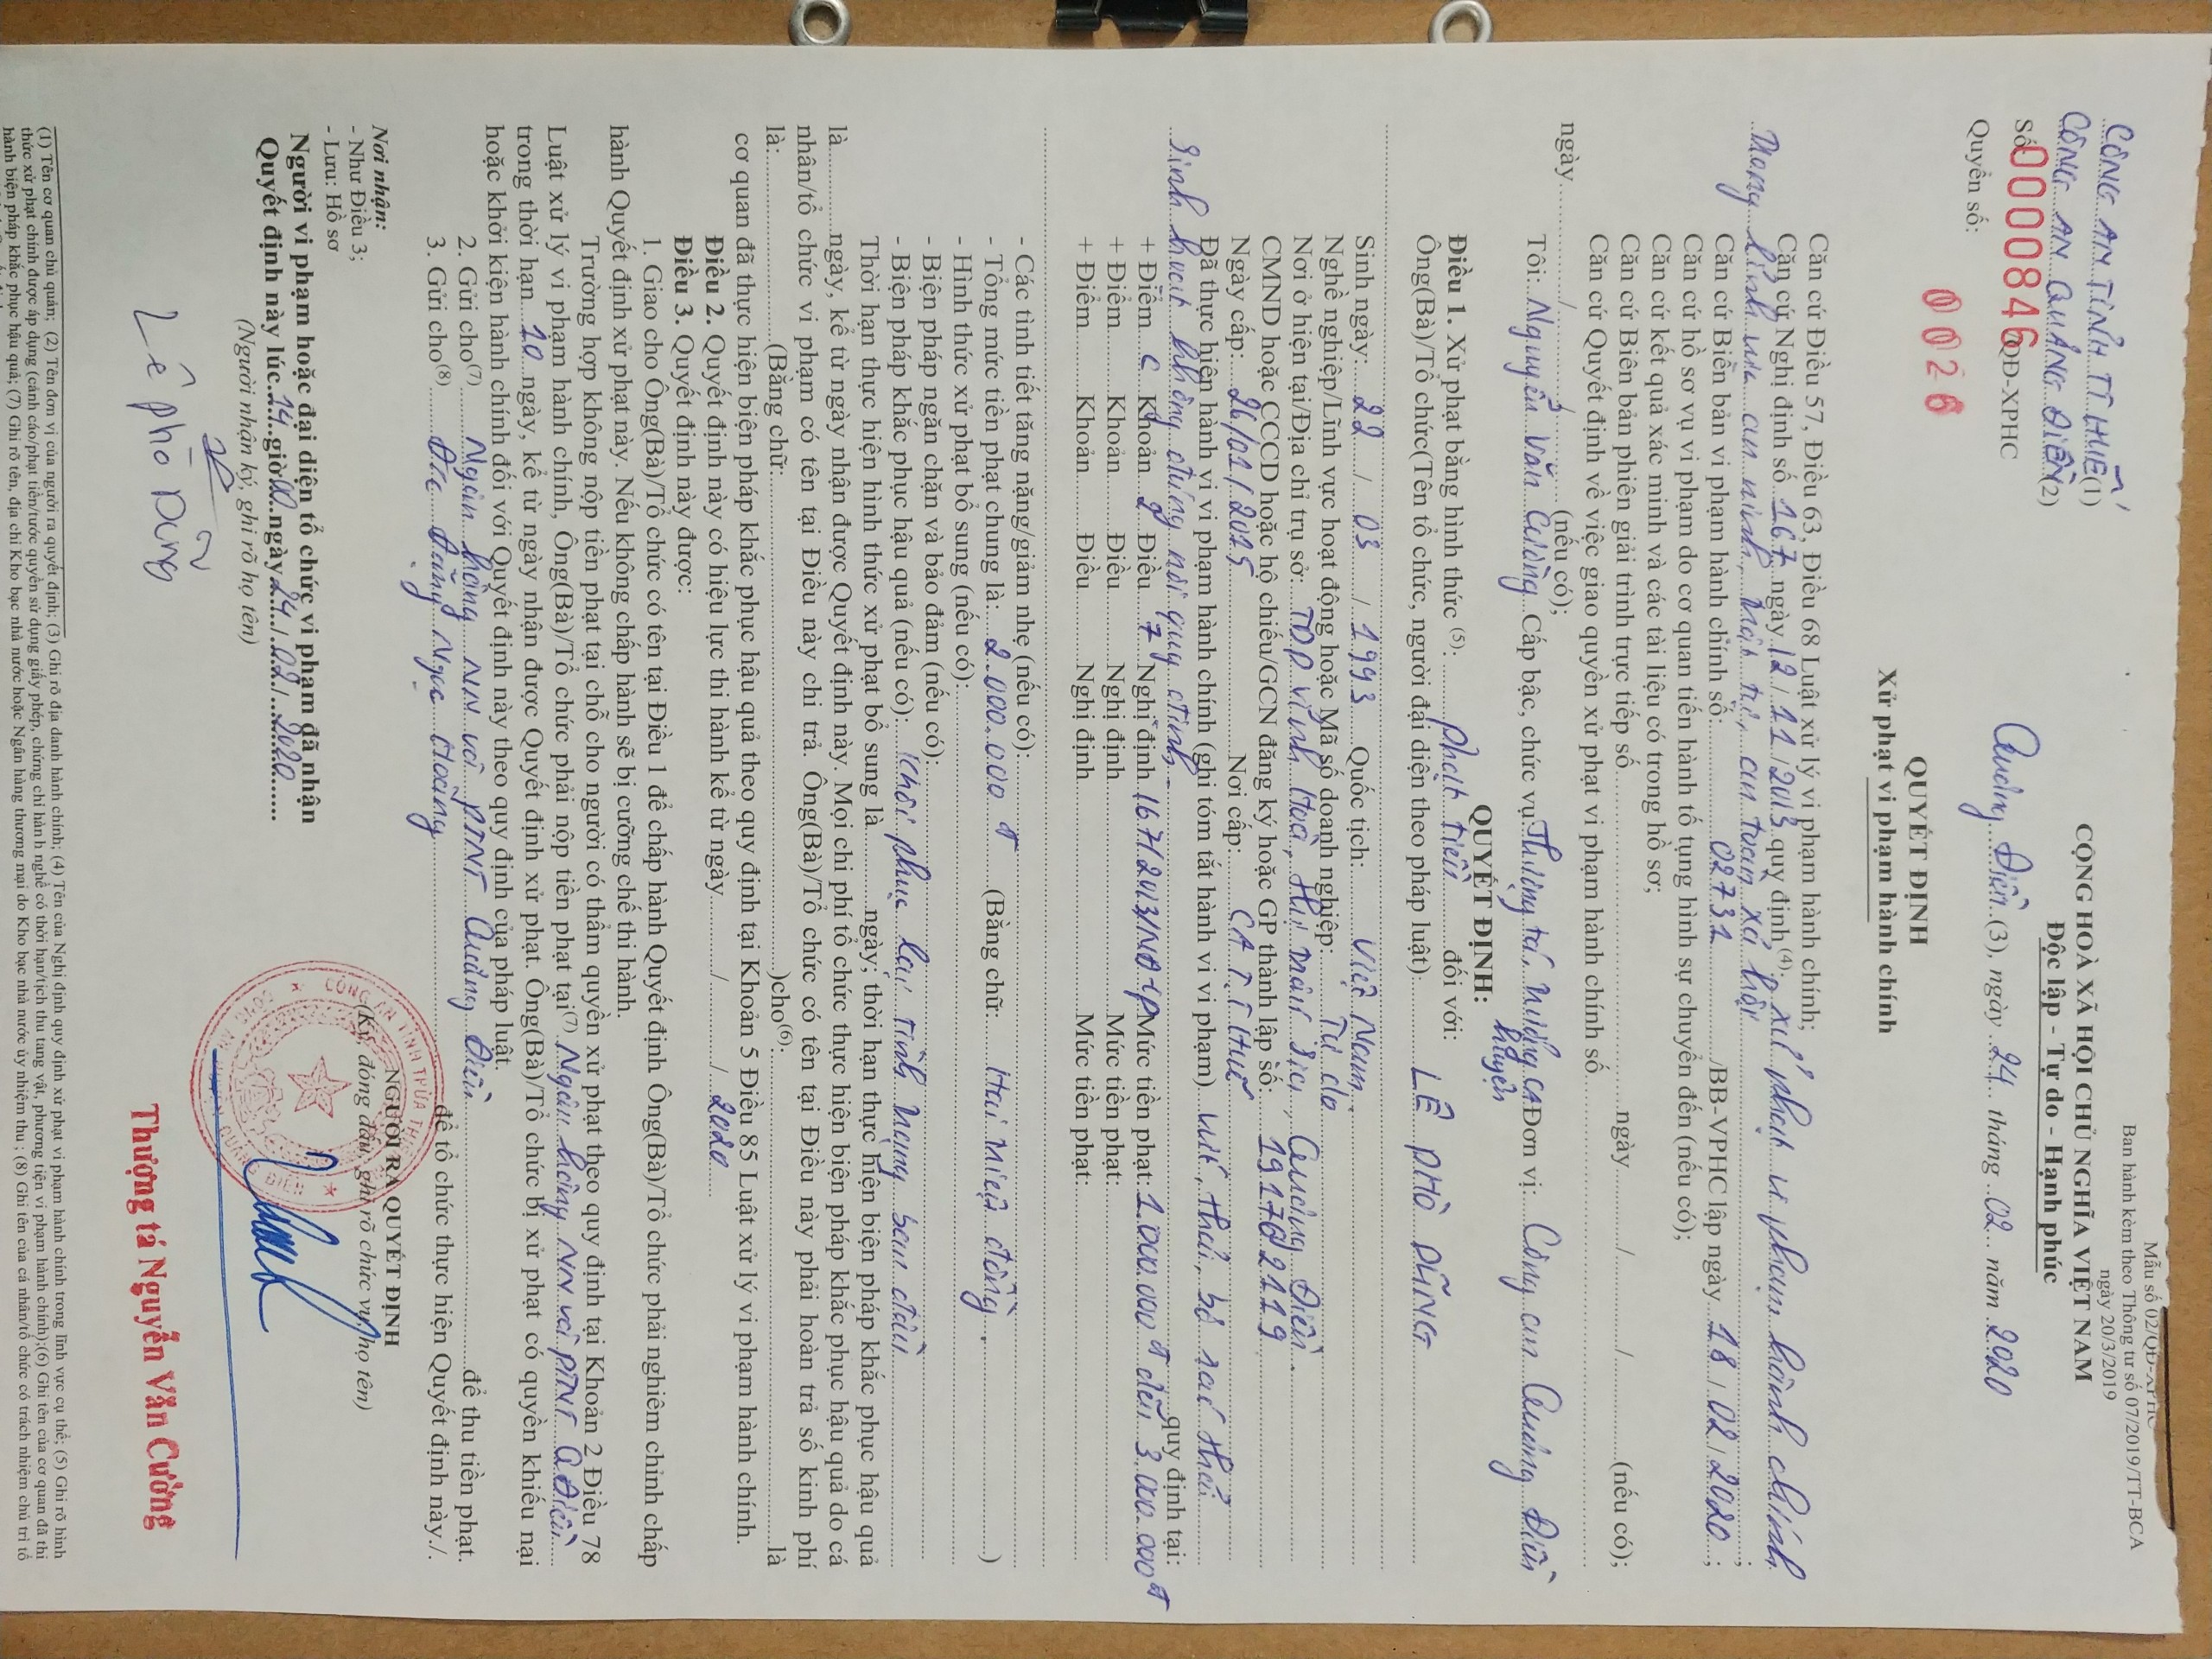 Mẫu số 02/QĐ-XPHC
Ban hành kèm theo Thông tư số 07/2019/TT-BCA
ngày 20/3/2019
CÔNG AN TỈNH TT HUẾ (1)
CÔNG AN QUẢNG ĐIỀN (2)
Số: 0000846 QĐ-XPHC
Quyển số:
00026
CỘNG HOÀ XÃ HỘI CHỦ NGHĨA VIỆT NAM
Độc lập - Tự do - Hạnh phúc
Quảng Điền (3), ngày 24 tháng 02 năm 2020
QUYẾT ĐỊNH
Xử phạt vi phạm hành chính
Căn cứ Điều 57, Điều 63, Điều 68 Luật xử lý vi phạm hành chính;
Căn cứ Nghị định số 167 ngày 12/11/2013 quy định (4): xử phạt vi phạm hành chính
trong lĩnh vực an ninh, trật tự, an toàn xã hội;
Căn cứ Biên bản vi phạm hành chính số: 02731 /BB-VPHC lập ngày 18/02/2020;
Căn cứ hồ sơ vụ vi phạm do cơ quan tiến hành tố tụng hình sự chuyển đến (nếu có);
Căn cứ kết quả xác minh và các tài liệu có trong hồ sơ;
Căn cứ Biên bản phiên giải trình trực tiếp số ngày / / (nếu có);
Căn cứ Quyết định về việc giao quyền xử phạt vi phạm hành chính số
ngày / / (nếu có);
Tôi: Nguyễn Văn Cường Cấp bậc, chức vụ: Thượng tá, trưởng CA huyện Đơn vị: Công an Quảng Điền
QUYẾT ĐỊNH:
Điều 1. Xử phạt bằng hình thức (5): phạt tiền đối với:
Ông(Bà)/Tổ chức(Tên tổ chức, người đại diện theo pháp luật): LÊ PHÒ DŨNG
Sinh ngày: 22 / 03 / 1993 Quốc tịch: Việt Nam
Nghề nghiệp/Lĩnh vực hoạt động hoặc Mã số doanh nghiệp: Tự do
Nơi ở hiện tại/Địa chỉ trụ sở: TDP Vĩnh Hoà, thị trấn Sịa, Quảng Điền.
CMND hoặc CCCD hoặc hộ chiếu/GCN đăng ký hoặc GP thành lập số: 191782119
Ngày cấp: 26/01/2015 Nơi cấp: CA TT Huế
Đã thực hiện hành vi vi phạm hành chính (ghi tóm tắt hành vi vi phạm) vứt, thải, bỏ rác thải
sinh hoạt không đúng nơi quy định. quy định tại:
+ Điểm c Khoản 2 Điều 7 Nghị định 167/2013/NĐ-CP Mức tiền phạt: 1.000.000đ đến 3.000.000đ
+ Điểm Khoản Điều Nghị định Mức tiền phạt:
+ Điểm Khoản Điều Nghị định Mức tiền phạt:
- Các tình tiết tăng nặng/giảm nhẹ (nếu có):
- Tổng mức tiền phạt chung là: 2.000.000 đ (Bằng chữ: Hai triệu đồng. )
- Hình thức xử phạt bổ sung (nếu có):
- Biện pháp ngăn chặn và bảo đảm (nếu có):
- Biện pháp khắc phục hậu quả (nếu có): khôi phục lại tình trạng ban đầu
Thời hạn thực hiện hình thức xử phạt bổ sung là ngày; thời hạn thực hiện biện pháp khắc phục hậu quả
là ngày, kể từ ngày nhận được Quyết định này. Mọi chi phí tổ chức thực hiện biện pháp khắc phục hậu quả do cá
nhân/tổ chức vi phạm có tên tại Điều này chi trả. Ông(Bà)/Tổ chức có tên tại Điều này phải hoàn trả số kinh phí
là: (Bằng chữ: )cho(6): là
cơ quan đã thực hiện biện pháp khắc phục hậu quả theo quy định tại Khoản 5 Điều 85 Luật xử lý vi phạm hành chính.
Điều 2. Quyết định này có hiệu lực thi hành kể từ ngày / / 2020
Điều 3. Quyết định này được:
1. Giao cho Ông(Bà)/Tổ chức có tên tại Điều 1 để chấp hành Quyết định Ông(Bà)/Tổ chức phải nghiêm chỉnh chấp
hành Quyết định xử phạt này. Nếu không chấp hành sẽ bị cưỡng chế thi hành.
Trường hợp không nộp tiền phạt tại chỗ cho người có thẩm quyền xử phạt theo quy định tại Khoản 2 Điều 78
Luật xử lý vi phạm hành chính, Ông(Bà)/Tổ chức phải nộp tiền phạt tại(7) Ngân hàng NN và PTNT Q.Điền
trong thời hạn 10 ngày, kể từ ngày nhận được Quyết định xử phạt. Ông(Bà)/Tổ chức bị xử phạt có quyền khiếu nại
hoặc khởi kiện hành chính đối với Quyết định này theo quy định của pháp luật.
2. Gửi cho(7) Ngân hàng NN và PTNT Quảng Điền để thu tiền phạt.
3. Gửi cho(8) Đ/c Đặng Ngọc Hoàng để tổ chức thực hiện Quyết định này./.
Nơi nhận:
- Như Điều 3;
- Lưu: Hồ sơ
NGƯỜI RA QUYẾT ĐỊNH
(Ký, đóng dấu, ghi rõ chức vụ, họ tên)
CÔNG AN TỈNH THỪA THIÊN
QUẢNG ĐIỀN
Thượng tá Nguyễn Văn Cường
Người vi phạm hoặc đại diện tổ chức vi phạm đã nhận
Quyết định này lúc 14 giờ 00 ngày 24 / 02 / 2020
(Người nhận ký, ghi rõ họ tên)
Lê Phò Dũng
(1) Tên cơ quan chủ quản; (2) Tên đơn vị của người ra quyết định; (3) Ghi rõ địa danh hành chính; (4) Tên của Nghị định quy định xử phạt vi phạm hành chính trong lĩnh vực cụ thể; (5) Ghi rõ hình
thức xử phạt chính được áp dụng (cảnh cáo/phạt tiền/tước quyền sử dụng giấy phép, chứng chỉ hành nghề có thời hạn/tịch thu tang vật, phương tiện vi phạm hành chính);(6) Ghi tên của cơ quan đã thi
hành biện pháp khắc phục hậu quả; (7) Ghi rõ tên, địa chỉ Kho bạc nhà nước hoặc Ngân hàng thương mại do Kho bạc nhà nước ủy nhiệm thu; (8) Ghi tên của cá nhân/tổ chức có trách nhiệm chủ trì tổ